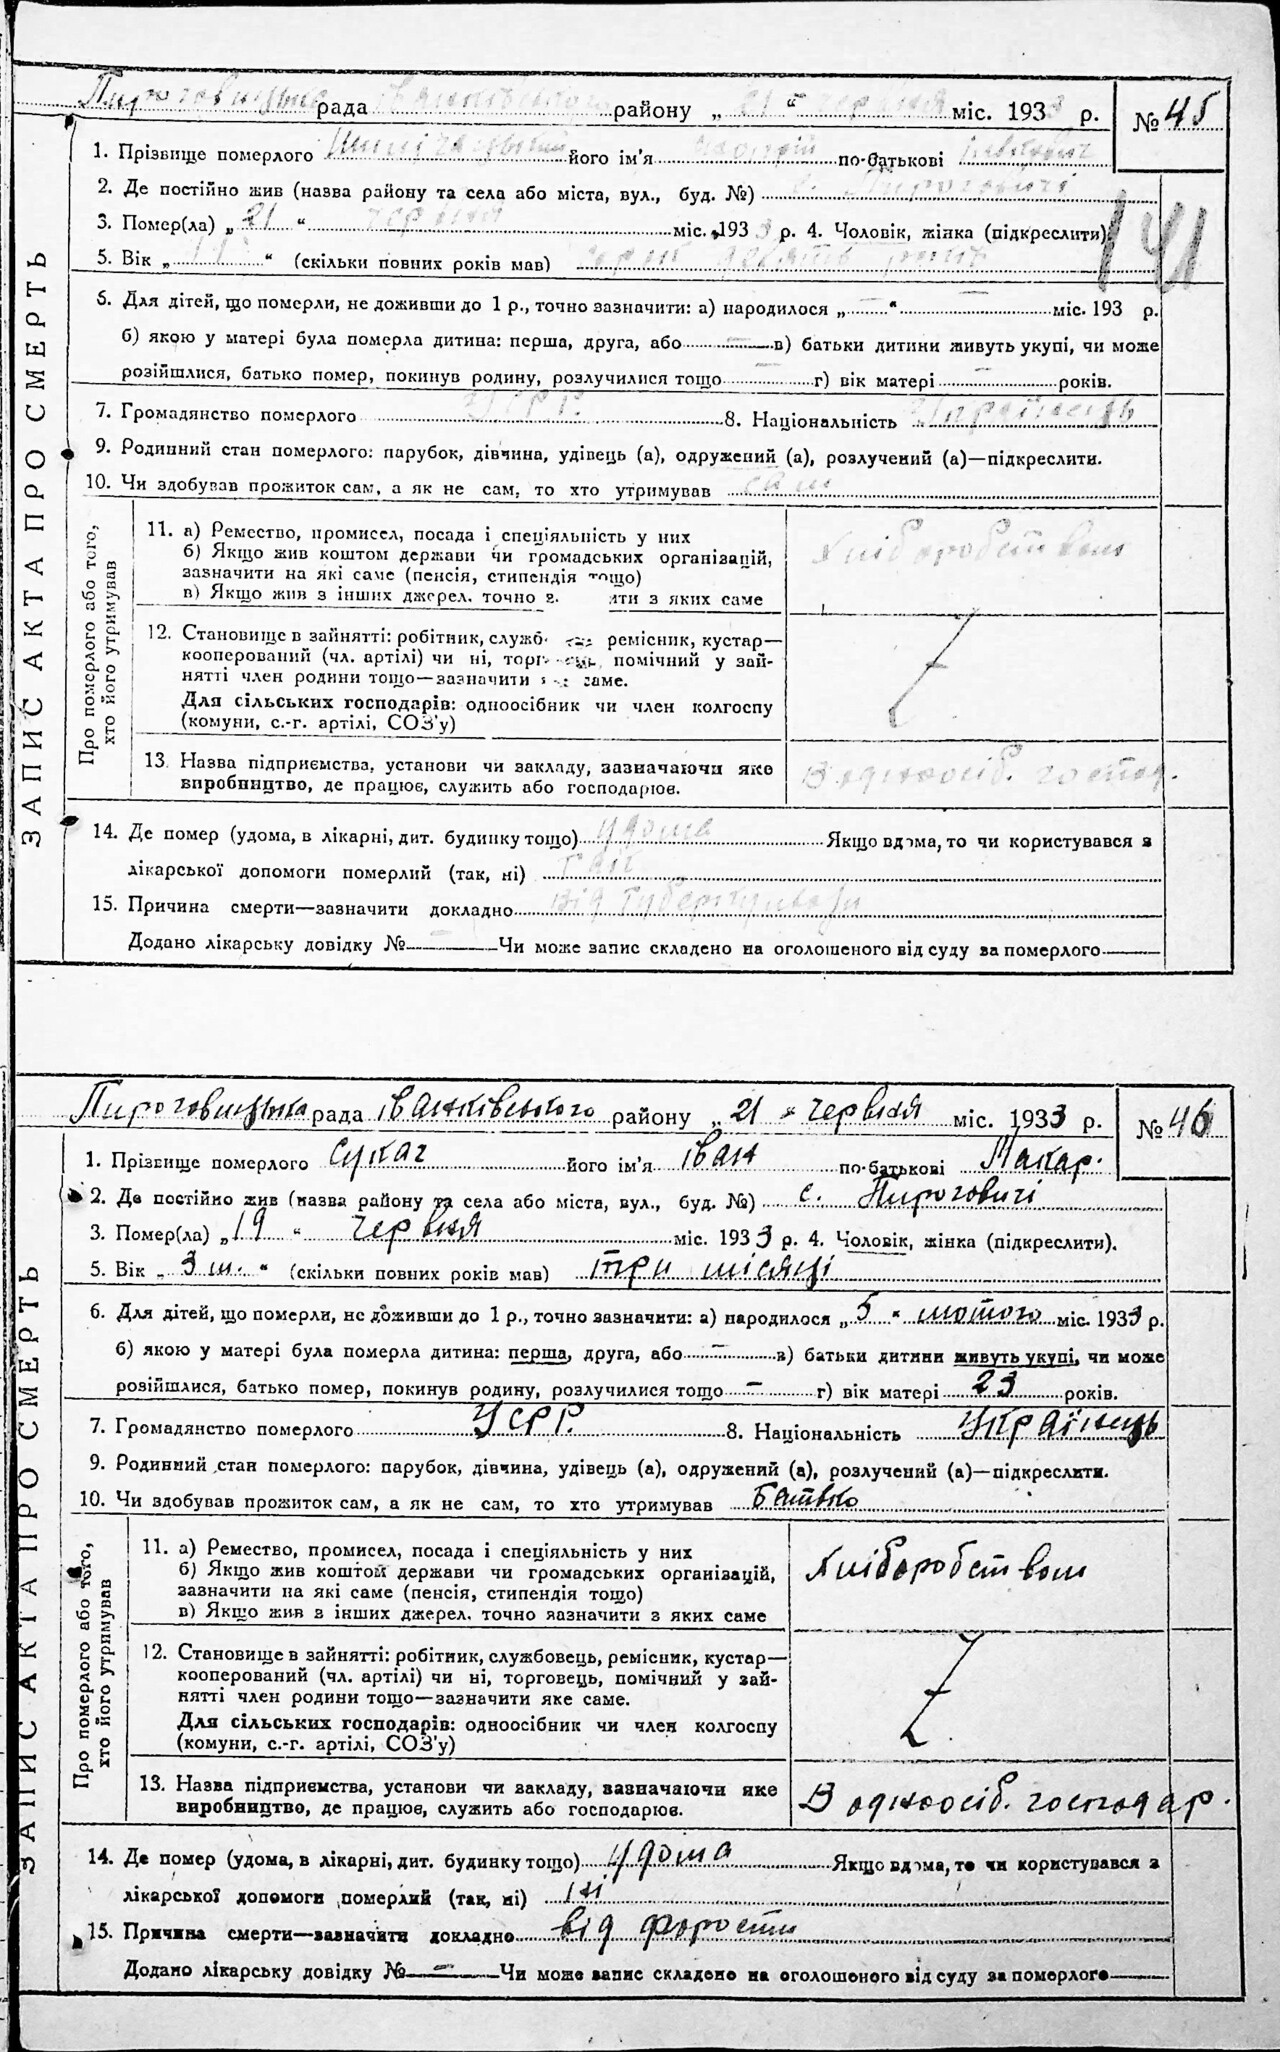 Пироговицька рада Іванківського району „ 21 “ червня міс. 1933 р. № 45
1. Прізвище померлого його ім'я по-батькові
2. Де постійно жив (назва району та села або міста, вул., буд. №) с. Пироговичі
3. Помер(ла) „ 21 “ червня міс. 1933 р. 4. Чоловік, жінка (підкреслити).
141
5. Вік „ “ (скільки повних років мав) сорок років
6. Для дітей, що померли, не доживши до 1 р., точно зазначити: а) народилося „ — “ — міс. 193 р.
б) якою у матері була померла дитина: перша, друга, або — в) батьки дитини живуть укупі, чи може
розійшлися, батько помер, покинув родину, розлучилися тощо — г) вік матері — років.
7. Громадянство померлого УСРР. 8. Національність Українець
9. Родинний стан померлого: парубок, дівчина, удівець (а), одружений (а), розлучений (а)—підкреслити.
10. Чи здобував прожиток сам, а як не сам, то хто утримував сам
Про померлого або того, хто його утримував
11. а) Ремество, промисел, посада і спеціяльність у них
б) Якщо жив коштом держави чи громадських організацій,
зазначити на які саме (пенсія, стипендія тощо)
в) Якщо жив з інших джерел, точно з ити з яких саме
Хліборобством
12. Становище в зайнятті: робітник, служб ремісник, кустар—
кооперований (чл. артілі) чи ні, торг помічний у зай-
нятті член родини тощо—зазначити саме.
Для сільських господарів: одноосібник чи член колгоспу
(комуни, с.-г. артілі, СОЗ'у)
13. Назва підприємства, установи чи закладу, зазначаючи яке
виробництво, де працює, служить або господарює.
В одноосіб. господ.
14. Де помер (удома, в лікарні, дит. будинку тощо) удома Якщо вдома, то чи користувався з
лікарської допомоги померлий (так, ні) так
15. Причина смерти—зазначити докладно від туберкульози
Додано лікарську довідку № — Чи може запис складено на оголошеного від суду за померлого —
ЗАПИС АКТА ПРО СМЕРТЬ
Пироговицька рада Іванківського району „ 21 “ червня міс. 1933 р. № 46
1. Прізвище померлого Сукач його ім'я Іван по-батькові Макар.
2. Де постійно жив (назва району та села або міста, вул., буд. №) с. Пироговичі
3. Помер(ла) „ 19 “ червня міс. 1933 р. 4. Чоловік, жінка (підкреслити).
5. Вік „ 3 м. “ (скільки повних років мав) три місяці
6. Для дітей, що померли, не доживши до 1 р., точно зазначити: а) народилося „ 5 “ лютого міс. 1933 р.
б) якою у матері була померла дитина: перша, друга, або — в) батьки дитини живуть укупі, чи може
розійшлися, батько помер, покинув родину, розлучилися тощо — г) вік матері 23 років.
7. Громадянство померлого УСРР. 8. Національність Українець
9. Родинний стан померлого: парубок, дівчина, удівець (а), одружений (а), розлучений (а)—підкреслити.
10. Чи здобував прожиток сам, а як не сам, то хто утримував Батько
Про померлого або того, хто його утримував
11. а) Ремество, промисел, посада і спеціяльність у них
б) Якщо жив коштом держави чи громадських організацій,
зазначити на які саме (пенсія, стипендія тощо)
в) Якщо жив з інших джерел, точно зазначити з яких саме
Хліборобством
12. Становище в зайнятті: робітник, службовець, ремісник, кустар—
кооперований (чл. артілі) чи ні, торговець, помічний у зай-
нятті член родини тощо—зазначити яке саме.
Для сільських господарів: одноосібник чи член колгоспу
(комуни, с.-г. артілі, СОЗ'у)
13. Назва підприємства, установи чи закладу, зазначаючи яке
виробництво, де працює, служить або господарює.
В одноосіб. господар.
14. Де помер (удома, в лікарні, дит. будинку тощо) удома Якщо вдома, то чи користувався з
лікарської допомоги померлий (так, ні) ні
15. Причина смерти—зазначити докладно від
Додано лікарську довідку № — Чи може запис складено на оголошеного від суду за померлого —
ЗАПИС АКТА ПРО СМЕРТЬ